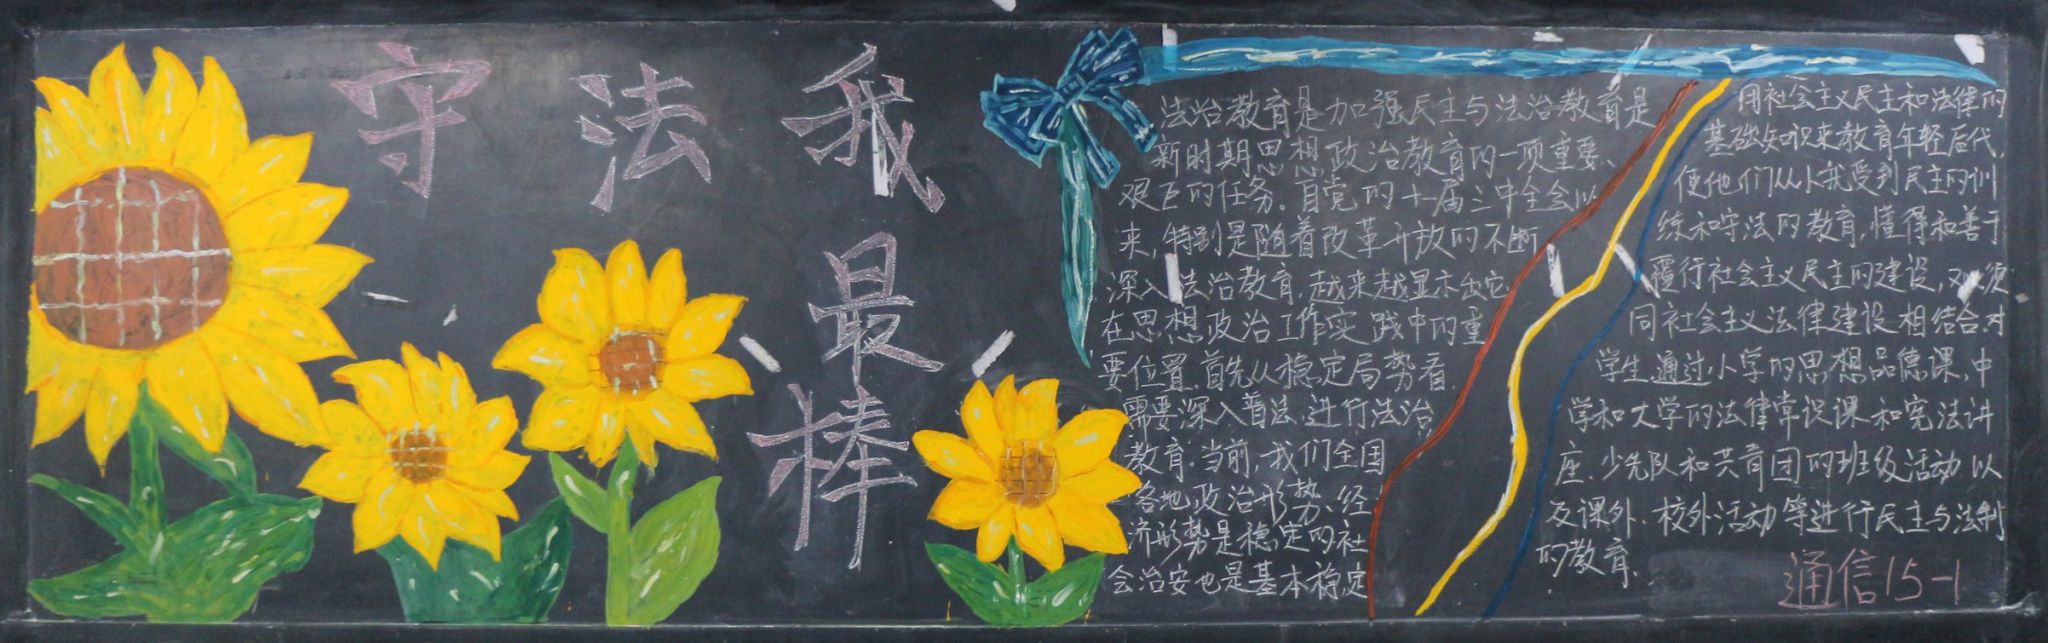 守法我
最
棒
法治教育是加强民主与法治教育是
新时期思想政治教育的一项重要、
艰巨的任务。自党的十一届三中全会以
来，特别是随着改革开放的不断
深入法治教育，越来越显示出它
在思想政治工作实践中的重
要位置。首先从稳定局势看
需要深入普法、进行法治
教育。当前，我们全国
各地政治形势、经
济形势是稳定的社
会治安也是基本稳定
用社会主义民主和法律的
基础知识来教育年轻后代，
使他们从小我受到民主的训
练和守法的教育，懂得和善于
履行社会主义民主的建设，又必须
同社会主义法律建设相结合。对
学生通过小学的思想品德课、中
学和大学的法律常识课和宪法讲
座、少先队和共青团的班级活动以
及课外、校外活动等进行民主与法制
的教育。
通信15-1